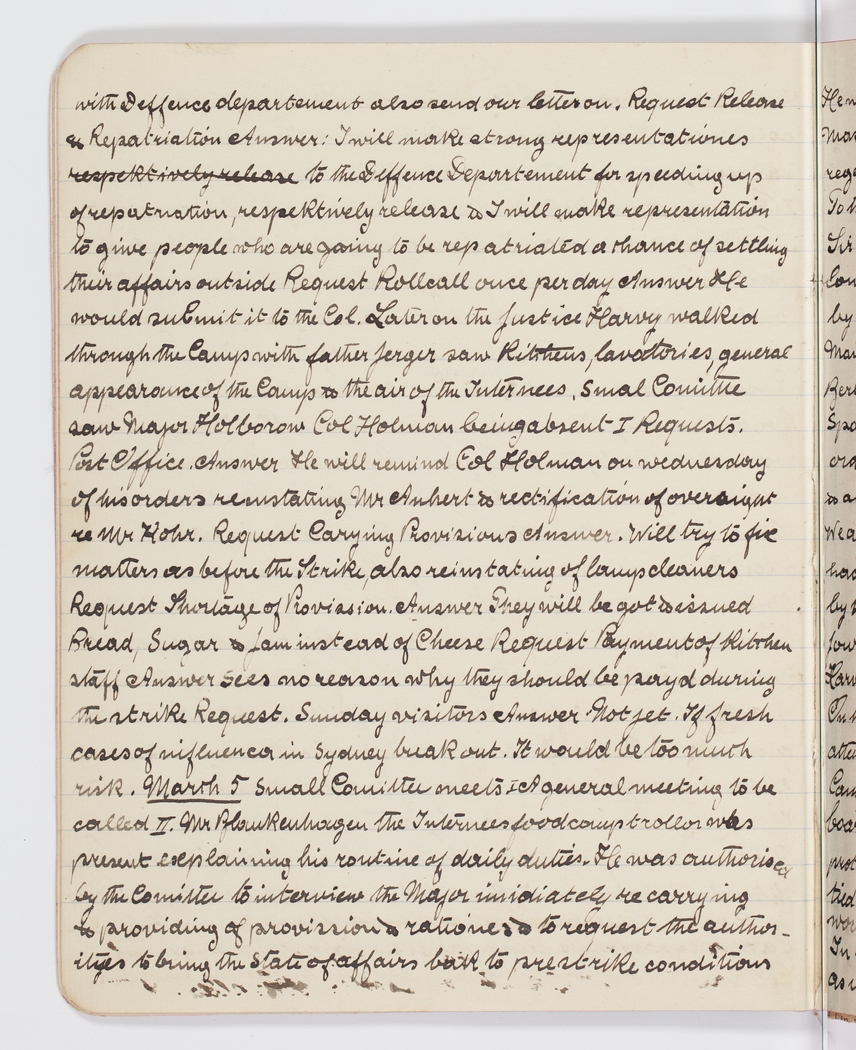 with Deffence departement also send our letter on. Request Release
& Repatriation Answer: I will make strong representationes
respektively release to the Deffence Departement for speeding up
of repatriation, respektively release & I will make representation
to give people who are going to be repatriated a chance of settling
their affairs outside Request Rollcall once per day Answer He
would submit it to the Col. Later on the Justice Harvy walked
through the Camp with father Jerger saw Kitchens, lavatories, general
appearance of the Camp & the air of the Internees. Smal Comittee
saw Major Holborow Col Holman being absent I Requests.
Post Office. Answer He will remind Col Holman on wednesday
of his orders reinstating Mr Auhert & rectification of oversight
re Mr Kohr. Request Carying Provisions Answer. Will try to fix
matters as before the Strike, also reinstating of lampcleaners
Request Shortage of Provission. Answer They will be got & issued
Bread, Sugar & Jam instead of Cheese Request Payment of Kitchen
staff Answer sees no reason why they should be payd during
the strike Request. Sunday visitors Answer Not jet. If fresh
cases of influenca in Sydney break out. It would be too much
risk. March 5 Small Comittee meets I A general meeting to be
called II. Mr Blankenhagen the Internees foodcomptrollor was
present explaining his routine of daily duties. He was authorised
by the Comittee to interview the Major imidiately re carrying
& providing of provission & rationes & to request the author-
ityes to bring the state of affairs bak to prestrike conditions